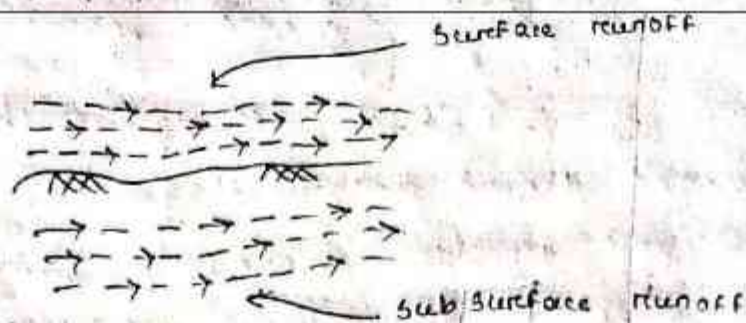 Surface runoff
Sub surface runoff